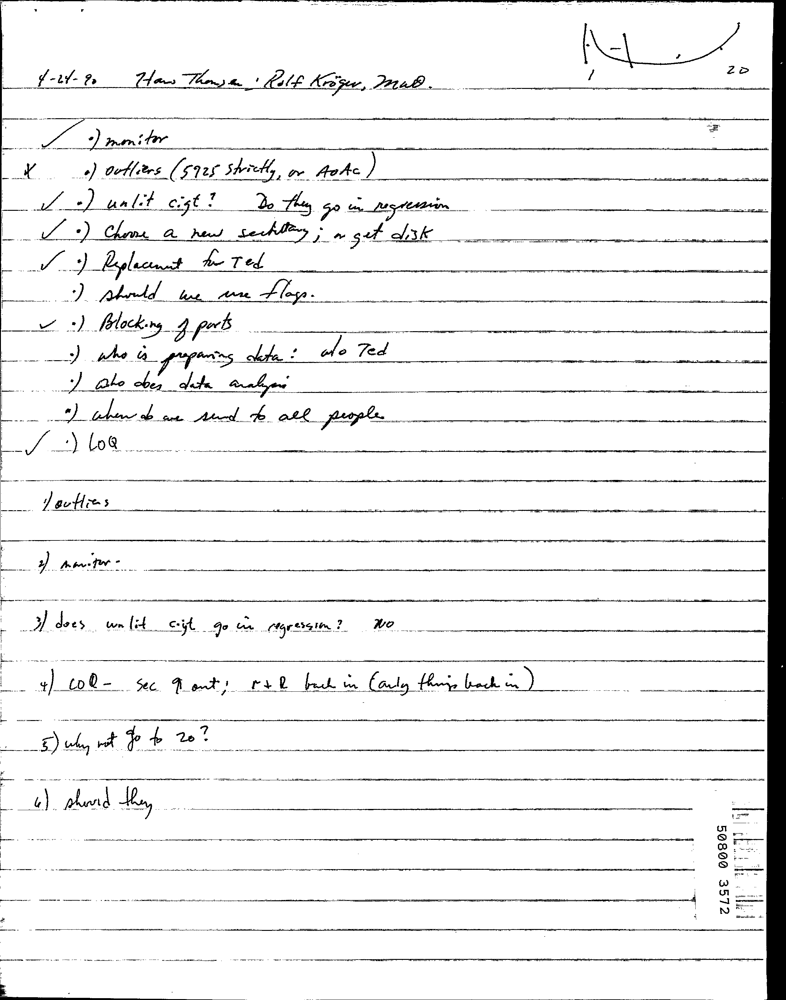 1
20
4-24-90 Hans Thomsen; Rolf Kröger, MWO.
✓ •) monitor
x •) outliers (5925 strictly, or AOAC)
✓ •) unlit cigt? Do they go in regression
✓ •) Choose a new secretary; or get disk
✓ •) Replacement for Ted
•) should we use flags.
✓ •) Blocking of ports
•) who is preparing data: w/o Ted
•) who does data analysis
•) when do we send to all people
✓ •) LOQ
1) outliers
2) monitor -
3) does unlit cigt go in regression? NO
4) LOQ - sec 9 out; r+R back in (only things back in)
5) why not go to 20?
6) should they
50800 3572